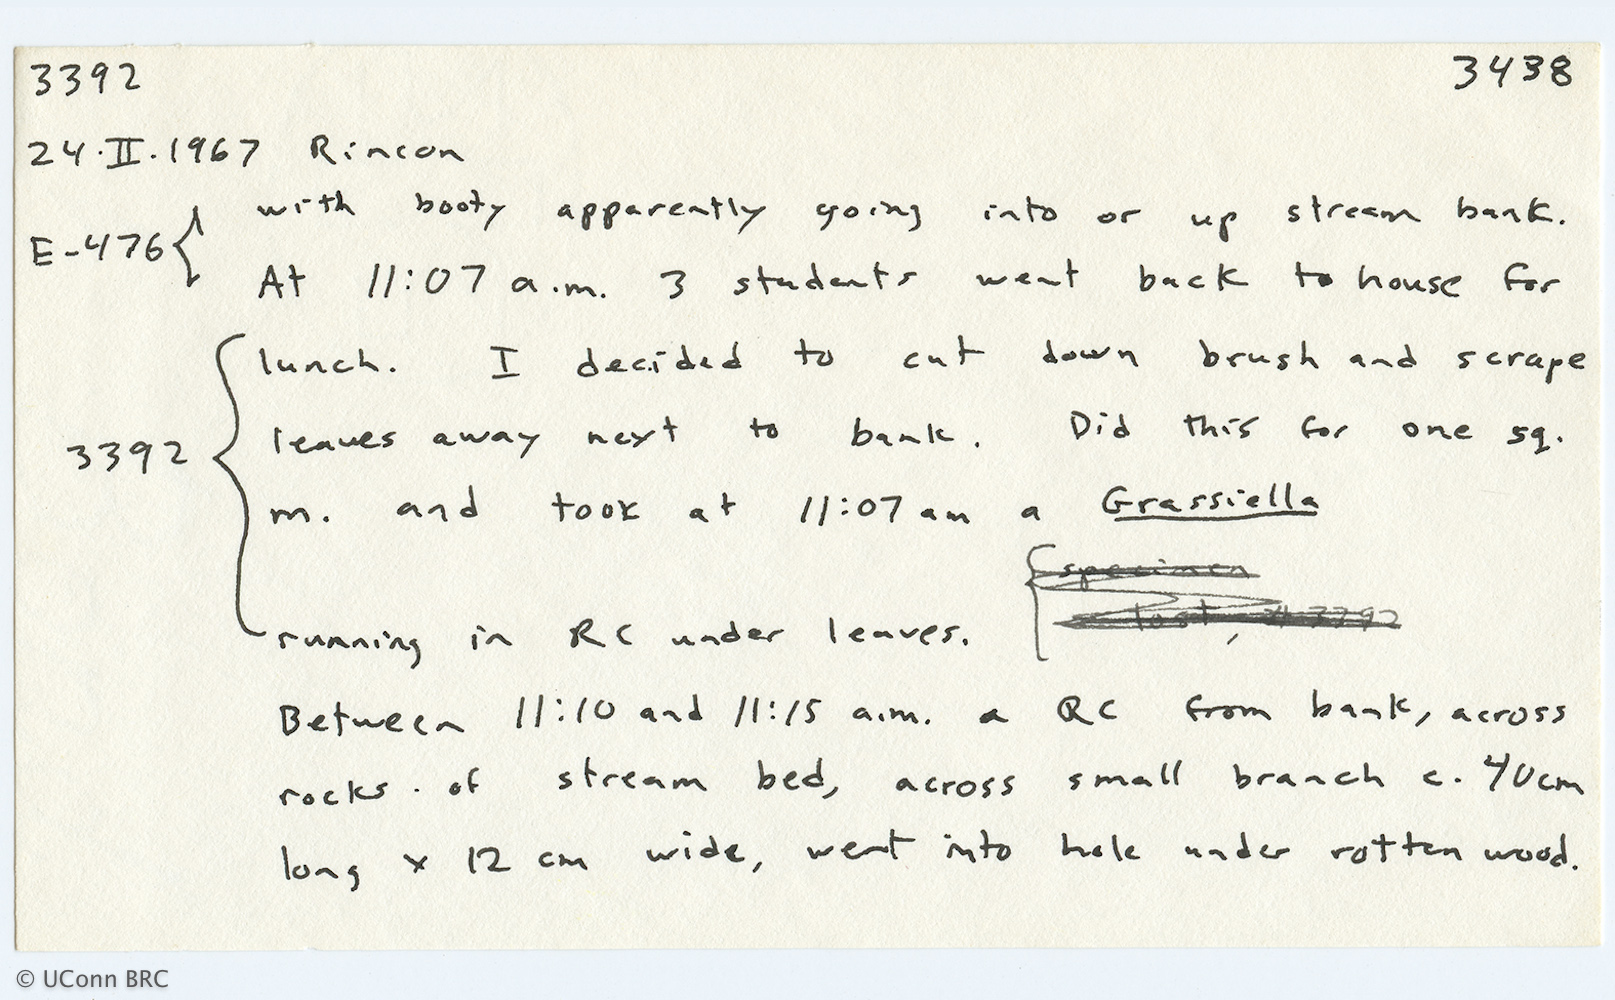 3392 3438
24.II.1967 Rincon
with booty apparently going into or up stream bank.
E-476 {
At 11:07 a.m. 3 students went back to house for
lunch. I decided to cut down brush and scrape
leaves away next to bank. Did this for one sq.
3392 {
m. and took at 11:07 am a Grassiella
{ specimen
lost, # 3392
running in RC under leaves.
Between 11:10 and 11:15 a.m. a RC from bank, across
rocks of stream bed, across small branch c. 40cm
long x 12 cm wide, went into hole under rotten wood.
© UConn BRC